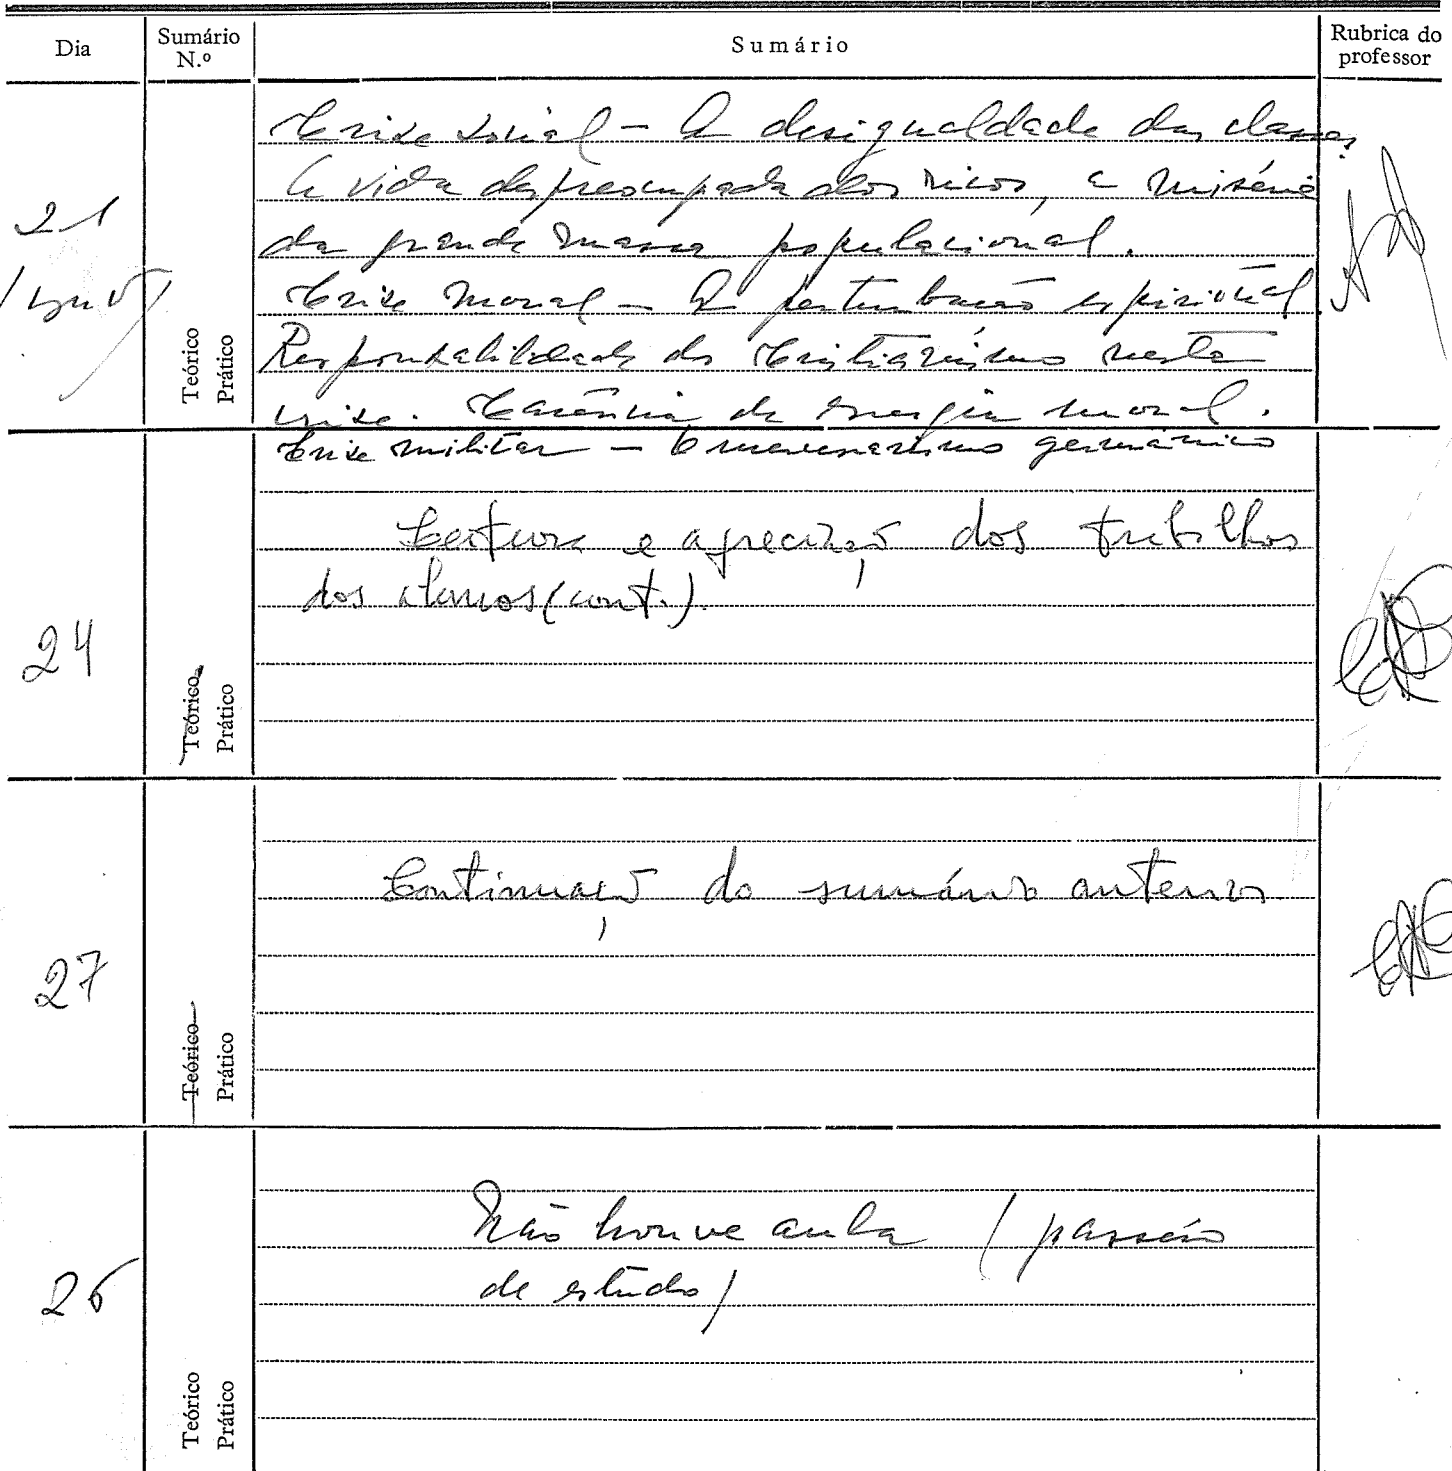 Dia
Sumário
N.º
Sumário
Rubrica do
professor
21
Teórico
Prático
Crise social – A desigualdade das classes.
A vida despreocupada dos ricos, a miséria
da grande massa populacional.
Crise moral – A perturbação espiritual.
Responsabilidade do Cristianismo nesta
crise. Carência de energia moral.
Crise militar – O mercenarismo germânico
24
Teórico
Prático
Leitura e apreciação dos trabalhos
dos alunos (cont.).
27
Teórico
Prático
Continuação do sumário anterior
26
Teórico
Prático
Não houve aula (passeio
de estudo)